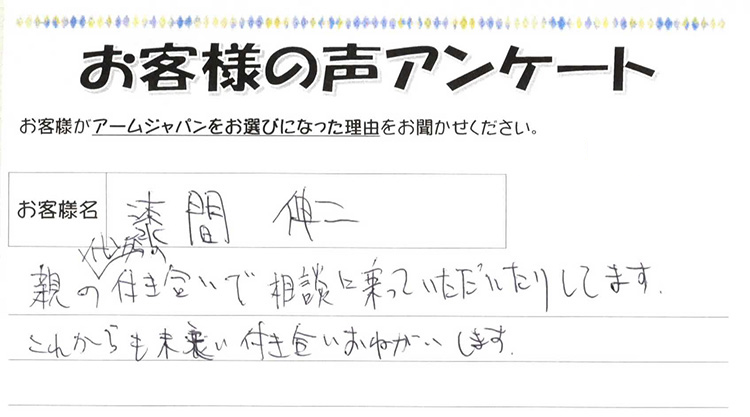 お客様の声アンケート
お客様がアームジャパンをお選びになった理由をお聞かせください。
お客様名 漆間 伸二
親の代からの付き合いで相談に乗っていただいたりしてます.
これからも末長い付き合いおねがいします.